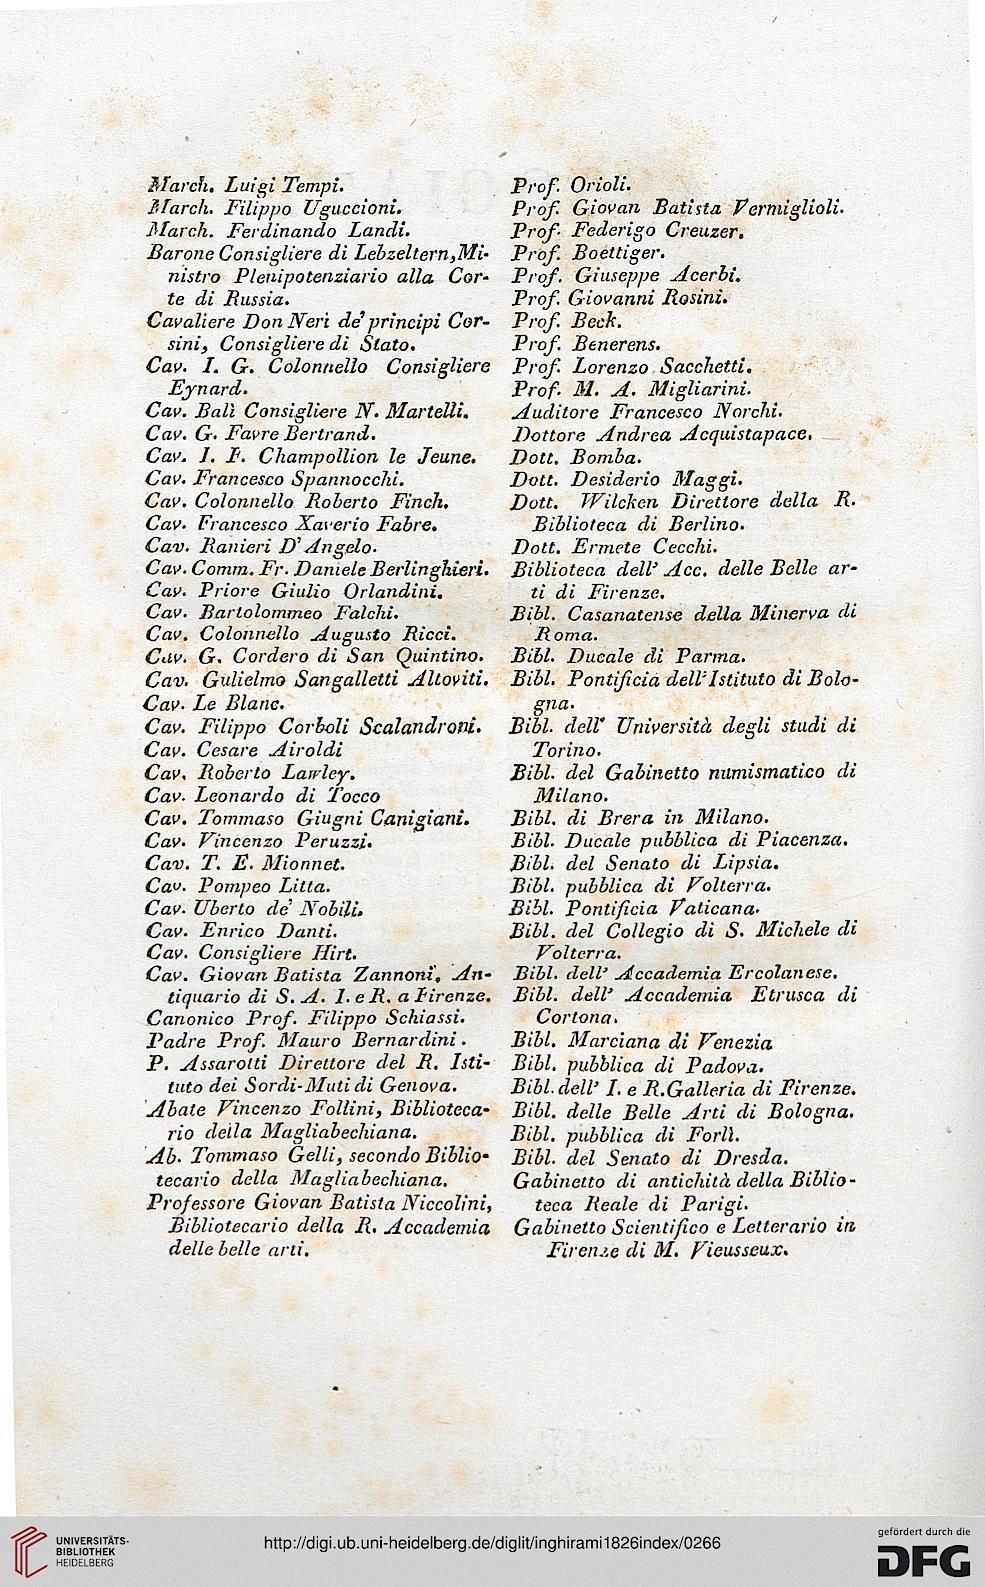 March. Luigi Tempi.
March. Filippo Uguccioni.
March. Ferdinando Landi.
Barone Consigliere di Lebzeltern, Mi-
nistro Plenipotenziario alla Cor-
te di Russia.
Cavaliere Don Neri de' principi Cor-
sini, Consigliere di Stato.
Cav. I. G. Colonnello Consigliere
Eynard.
Cav. Balì Consigliere N. Martelli.
Cav. G. Favre Bertrand.
Cav. I. F. Champollion le Jeune.
Cav. Francesco Spannocchi.
Cav. Colonnello Roberto Finch.
Cav. Francesco Xaverio Fabre.
Cav. Ranieri D'Angelo.
Cav. Comm. Fr. Daniele Berlinghieri.
Cav. Priore Giulio Orlandini.
Cav. Bartolommeo Falchi.
Cav. Colonnello Augusto Ricci.
Cav. G. Cordero di San Quintino.
Cav. Gulielmo Sangalletti Altoviti.
Cav. Le Blanc.
Cav. Filippo Corboli Scalandroni.
Cav. Cesare Airoldi
Cav. Roberto Lawley.
Cav. Leonardo di Tocco
Cav. Tommaso Giugni Canigiani.
Cav. Vincenzo Peruzzi.
Cav. T. E. Mionnet.
Cav. Pompeo Litta.
Cav. Uberto de' Nobili.
Cav. Enrico Danti.
Cav. Consigliere Hirt.
Cav. Giovan Batista Zannoni, An-
tiquario di S. A. I. e R. a Firenze.
Canonico Prof. Filippo Schiassi.
Padre Prof. Mauro Bernardini.
P. Assarotti Direttore del R. Isti-
tuto dei Sordi-Muti di Genova.
Abate Vincenzo Follini, Biblioteca-
rio della Magliabechiana.
Ab. Tommaso Gelli, secondo Biblio-
tecario della Magliabechiana.
Professore Giovan Batista Niccolini,
Bibliotecario della R. Accademia
delle belle arti.
Prof. Orioli.
Prof. Giovan Batista Vermiglioli.
Prof. Federigo Creuzer.
Prof. Boettiger.
Prof. Giuseppe Acerbi.
Prof. Giovanni Rosini.
Prof. Beck.
Prof. Benerens.
Prof. Lorenzo Sacchetti.
Prof. M. A. Migliarini.
Auditore Francesco Norchi.
Dottore Andrea Acquistapace.
Dott. Bomba.
Dott. Desiderio Maggi.
Dott. Wilcken Direttore della R.
Biblioteca di Berlino.
Dott. Ermete Cecchi.
Biblioteca dell' Acc. delle Belle ar-
ti di Firenze.
Bibl. Casanatense della Minerva di
Roma.
Bibl. Ducale di Parma.
Bibl. Pontificia dell'Istituto di Bolo-
gna.
Bibl. dell' Università degli studi di
Torino.
Bibl. del Gabinetto numismatico di
Milano.
Bibl. di Brera in Milano.
Bibl. Ducale pubblica di Piacenza.
Bibl. del Senato di Lipsia.
Bibl. pubblica di Volterra.
Bibl. Pontificia Vaticana.
Bibl. del Collegio di S. Michele di
Volterra.
Bibl. dell' Accademia Ercolanese.
Bibl. dell' Accademia Etrusca di
Cortona.
Bibl. Marciana di Venezia
Bibl. pubblica di Padova.
Bibl. dell' I. e R. Galleria di Firenze.
Bibl. delle Belle Arti di Bologna.
Bibl. pubblica di Forlì.
Bibl. del Senato di Dresda.
Gabinetto di antichità della Biblio-
teca Reale di Parigi.
Gabinetto Scientifico e Letterario in
Firenze di M. Vieusseux.
UNIVERSITÄTS-
BIBLIOTHEK
HEIDELBERG
http://digi.ub.uni-heidelberg.de/diglit/inghirami1826index/0266
gefördert durch die
DFG